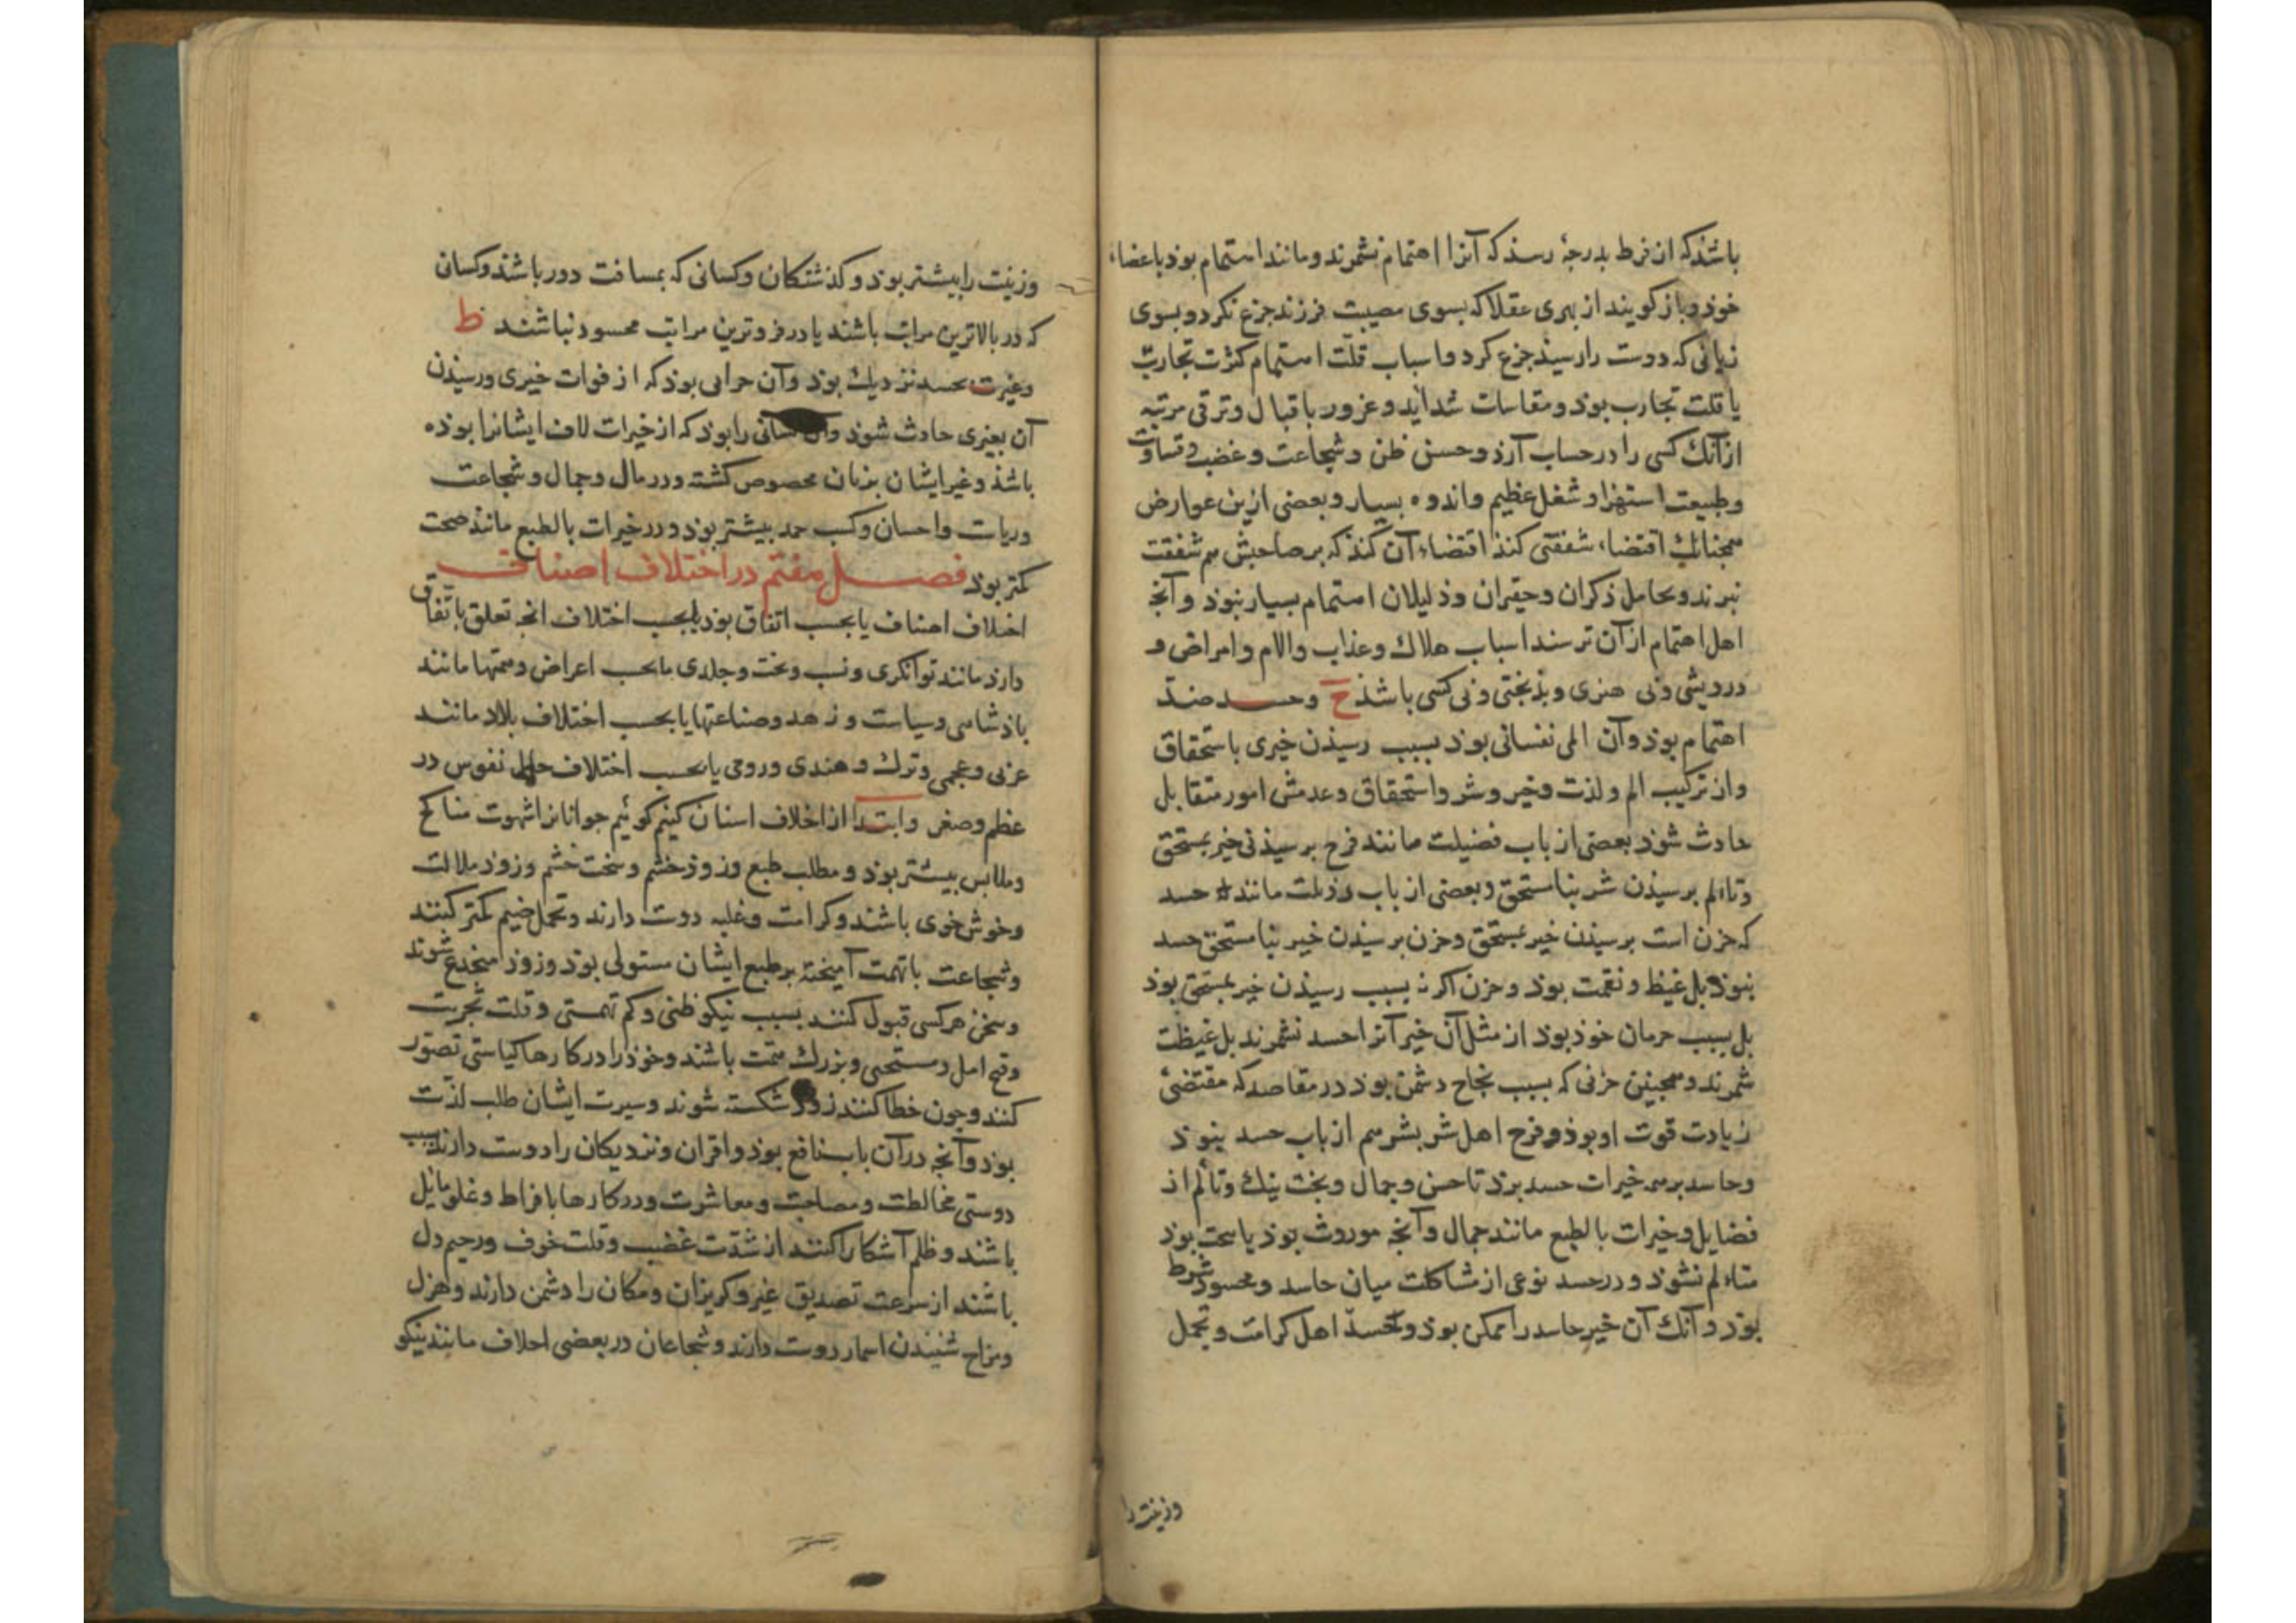 باشذ که از فرط بدرجهٔ رسذ که آنرا اهتمام نشمرند ومانند استمام بوذ باعضاء
خوذ وبازکویند از بهری عقلا که بسوی مصیبت فرزند جزع نکرد وبسوی
زیانی که دوست را رسیذ جزع کرد واسباب قلّت استمام کثرت تجارب
یا قلت تجارب بوذ ومقاسات شداید وغرور باقبال وترقی مرتبه
ازآنک کسی را در حساب آرذ وحسن ظن وشجاعت وغضب وقساوت
وطبیعت استهزا وشغل عظیم واندوه بسیار وبعضی ازین عوارض
همجنانک اقتضاء شفقتی کنذ اقتضاء آن کنذ که بر صاحبش هم شفقت
نبرند وبحامل ذکران وحقیران وذلیلان استمام بسیار نبوذ وآنج
اهل اهتمام ازآن ترسند اسباب هلاک وعذاب والام وامراض و
درویشی وبی هنری وبذبختی وبی کسی باشذ ح وحسد ضدّ
اهتمام بوذ وآن المی نفسانی بوذ بسبب رسیذن خیری باستحقاق
واز ترکیب الم ولذت وخیر وشر واستحقاق وعدمش امور متقابل
حادث شوذ بعضی از باب فضیلت مانند فرح برسیذن خیر بمستحق
وتاالم برسیذن شر بنامستحق وبعضی از باب رذیلت مانند حسد
که حزن است برسیذن خیر بمستحق وحزن برسیذن خیر بنامستحق حسد
نبوذ بل غیظ ونقمت بوذ وحزن اکر نه بسبب رسیذن خیر بمستحق بوذ
بل بسبب حرمان خوذ بوذ از مثل آن خیر آنرا حسد نشمرند بل غیظت
شمرند وهمجنین حزنی که بسبب نجاح دشمن بوذ در مقاصد که مقتضیٔ
زیادت قوت او بوذ وفرح اهل شر بشر هم از باب حسد نبوذ
وحاسد بر همه خیرات حسد برذ تا حسن وجمال وبخت نیک وتألم از
فضایل وخیرات بالطبع مانند جمال وآنج موروث بوذ یا سخت بوذ
متاءلم نشوذ ودر حسد نوعی از مشاکلت میان حاسد ومحسود شرط
بوذ وآنک آن خیر حاسد را ممکن بوذ وحسد اهل کرامت وتجمل
وزینت را
وزینت را بیشتر بوذ وکذشتکان وکسانی که بمسافت دور باشند وکسانی
که در بالاترین مراتب باشند یا در فروترین مراتب محسود نباشند ط
وغیرت بحسد نزدیک بوذ وآن حرابی بوذ که از فوات خیری ورسیذن
آن بغیری حادث شوذ وآن کسانی را بوذ که از خیرات لاف ایشانرا بوذه
باشذ وغیر ایشان بذان مخصوص کشته ودر مال وجمال وشجاعت
وریاست واحسان وکسب حمد بیشتر بوذ ودر خیرات بالطبع مانند صحت
کمتر بوذ فصل هفتم در اختلاف اصناف
اخلاف اصناف یا بحسب اتفاق بوذ یا بحسب اختلاف آنج تعلق باتفاق
دارذ مانند توانکری ونسب وبخت وجلدی یا بحسب اعراض وهمتها مانند
پاذشاهی وسیاست وزهد وصناعتها یا بحسب اختلاف بلاد مانند
عربی وعجمی وترک وهندی ورومی یا بحسب اختلاف حال نفوس در
عظم وصغر وابتدا از اخلاف اسنان کنیم کوئیم جوانانرا شهوت مناکح
وملابس بیشتر بوذ ومطلب طبع وزوذ خشم وسخت خشم وزوذ ملالت
وخوش خوی باشند وکرامت وغلبه دوست دارند وتحمل ضیم کمتر کنند
وشجاعت باتهمت آمیخته بر طبع ایشان مستولی بوذ وزوذ منخدع شوند
وسخن هر کسی قبول کنند بسبب نیکو ظنی وکم تهمتی وقلت تجربت
وقح امل ومستحیی وبزرک همت باشند وخوذ را در کارها کیاستی تصور
کنند وجون خطا کنند زوذ شکسته شوند وسیرت ایشان طلب لذّت
بوذ وآنج درآن باب نافع بوذ واقران ونزدیکان را دوست دارند بسبب
دوستی مخالطت ومصاحبت ومعاشرت ودر کارها بافراط وغلو مایل
باشند وظلم آشکارا کنند از شدّت غضب وقلت خوف ورحیم دل
باشند از سرعت تصدیق غیر وکریزان ومکان را دشمن دارند وهزل
ومزاح شنیدن اسمار دوست دارند وشجاعان در بعضی اخلاف مانند نیکو